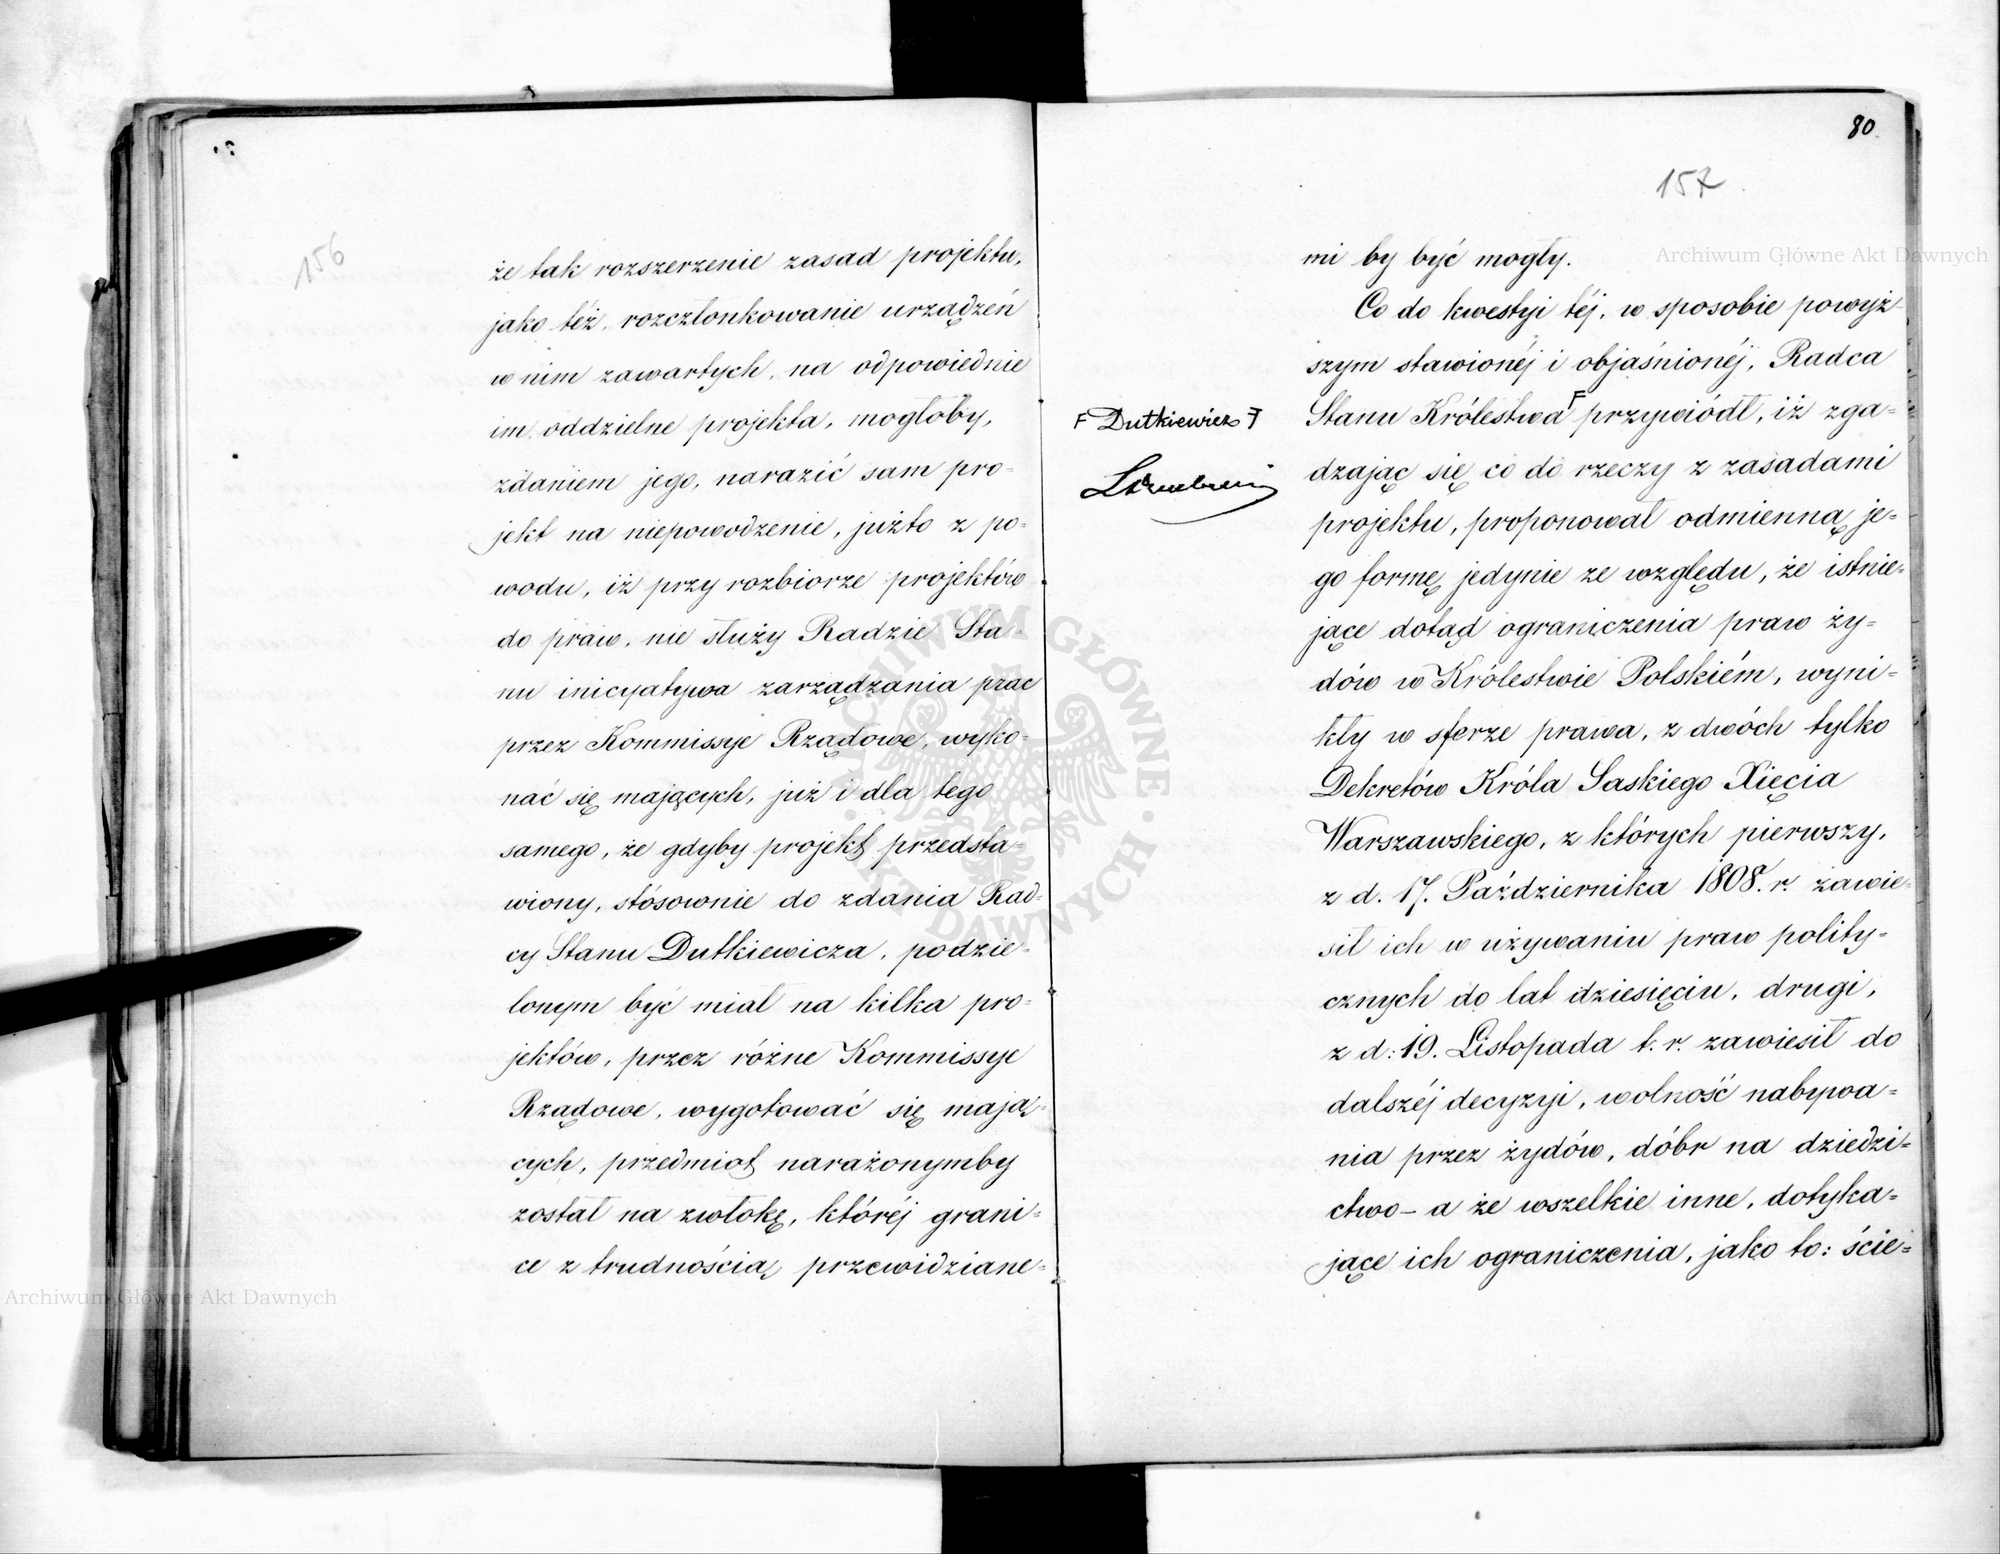 156
że tak rozszerzenie zasad projektu,
jako też, rozczłonkowanie urządzeń
w nim zawartych, na odpowiednie
im, oddzielne projekta, mogłoby,
zdaniem jego, narazić sam pro=
jekt na niepowodzenie, jużto z po=
wodu, iż przy rozbiorze projektów
do praw, nie służy Radzie Sta=
nu inicyatywa zarządzania prac
przez Kommissye Rządowe, wyko=
nać się mających, już i dla tego
samego, że gdyby projekt przedsta=
wiony, stósownie do zdania Rad=
cy Stanu Dutkiewicza, podzie=
lonym być miał na kilka pro=
jektów, przez różne Kommissye
Rządowe, wygotować się mają=
cych, przedmiot narażonymby
został na zwłokę, któréj grani=
ce z trudnością przewidziane=
80.
157
mi by być mogły.
Co do kwestyi téj, w sposobie powyż=
szym stawionéj i objaśnionéj, Radca
Stanu Królestwa F przywiódł, iż zga=
F Dutkiewicz F
dzając się co do rzeczy z zasadami
projektu, proponował odmienną je=
go formę jedynie ze względu, że istnie=
jące dotąd ograniczenia praw ży=
dów w Królestwie Polskiém, wyni=
kły w sferze prawa, z dwóch tylko
Dekretów Króla Saskiego Xięcia
Warszawskiego, z których pierwszy,
z d. 17. Października 1808. r. zawie=
sił ich w używaniu praw polity=
cznych do lat dziesięciu, drugi,
z d: 19. Listopada t. r. zawiesił do
dalszéj decyzyi, wolność nabywa=
nia przez żydów, dóbr na dziedzi=
ctwo – a że wszelkie inne, dotyka=
jące ich ograniczenia, jako to: ście=
Archiwum Główne Akt Dawnych
Archiwum Główne Akt Dawnych
ARCHIWUM GŁÓWNE AKT DAWNYCH